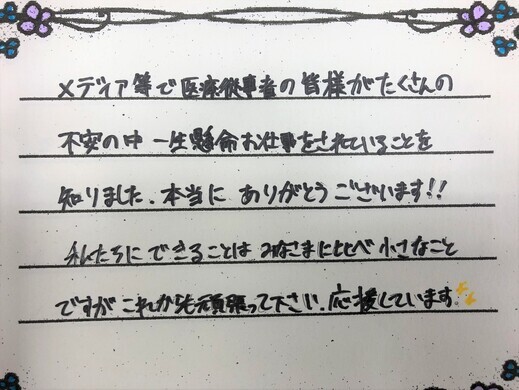 メディア等で医療従事者の皆様がたくさんの
不安の中 一生懸命お仕事をされていることを
知りました。本当に ありがとうございます!!
私たちに できることは みなさまに比べ 小さなこと
ですが これからも頑張って下さい。応援しています